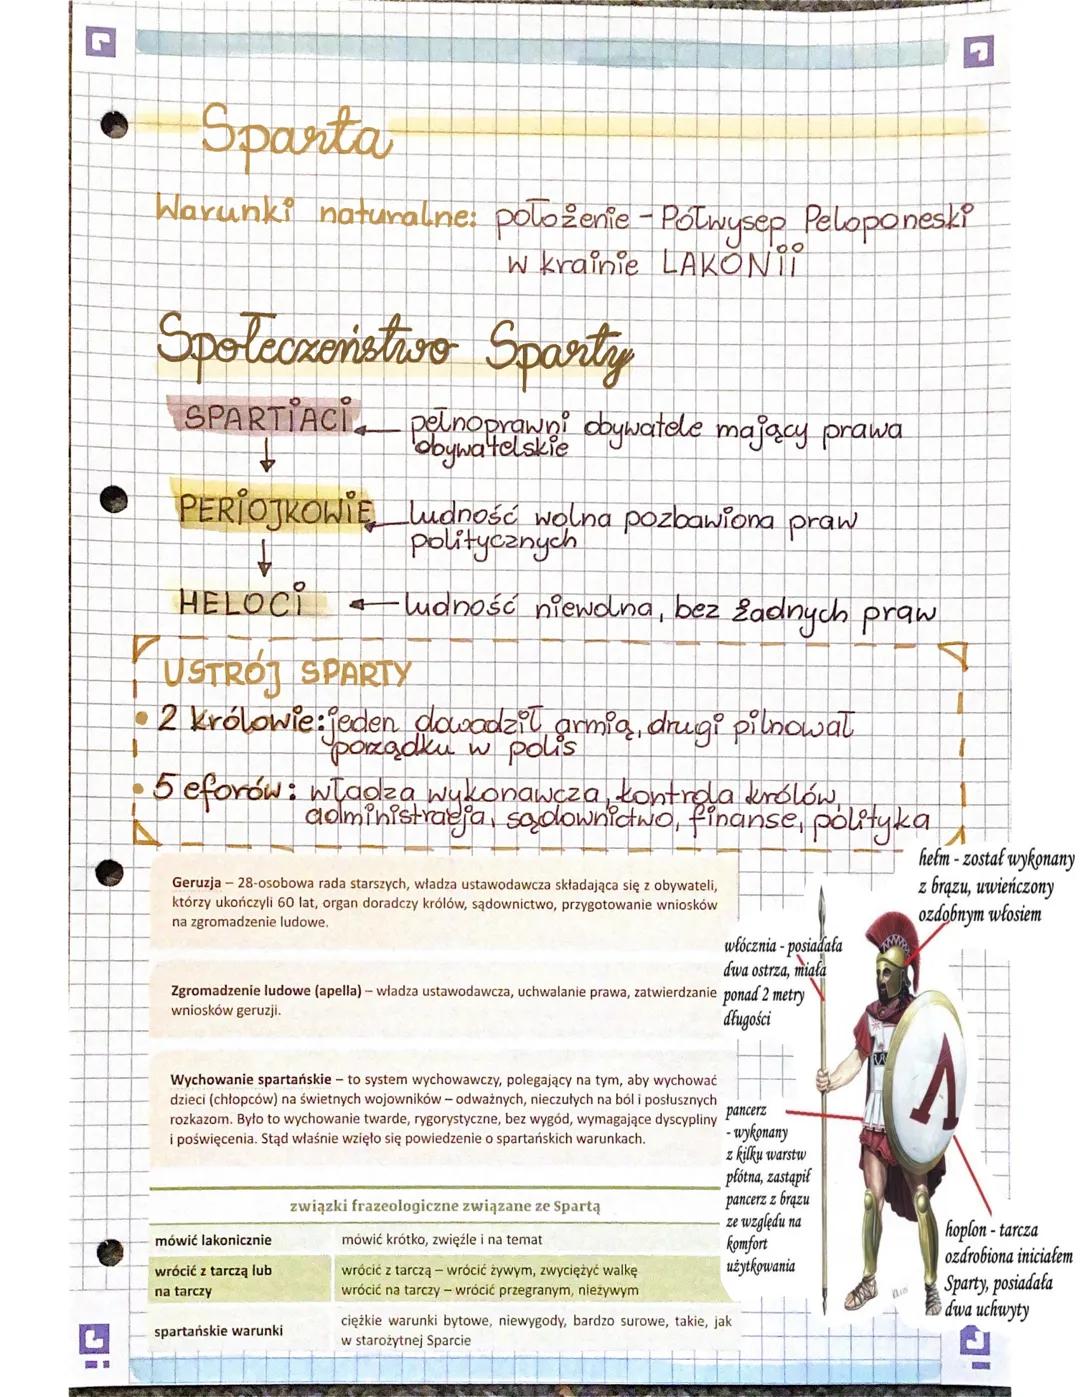 Sparta
Warunki naturalne: położenie - Półwysep Peloponeski
w krainie LAKONII
Społeczeństwo Sparty
SPARTIACI
pełnoprawni obywatele mający prawa
obywatelskie
PERIOJKOWIE
ludność wolna pozbawiona praw
politycznych
HELOCI
ludność niewolna, bez żadnych praw
USTRÓJ SPARTY
• 2 królowie: jeden dowodził armią, drugi pilnował
porządku w polis
• 5 eforów: władza wykonawcza, kontrola królów,
administracja, sądownictwo, finanse, polityka
Geruzja – 28-osobowa rada starszych, władza ustawodawcza składająca się z obywateli,
którzy ukończyli 60 lat, organ doradczy królów, sądownictwo, przygotowanie wniosków
na zgromadzenie ludowe.
Zgromadzenie ludowe (apella) – władza ustawodawcza, uchwalanie prawa, zatwierdzanie
wniosków geruzji.
Wychowanie spartańskie – to system wychowawczy, polegający na tym, aby wychować
dzieci (chłopców) na świetnych wojowników – odważnych, nieczułych na ból i posłusznych
rozkazom. Było to wychowanie twarde, rygorystyczne, bez wygód, wymagające dyscypliny
i poświęcenia. Stąd właśnie wzięło się powiedzenie o spartańskich warunkach.
związki frazeologiczne związane ze Spartą
mówić lakonicznie
mówić krótko, zwięźle i na temat
wrócić z tarczą lub
na tarczy
wrócić z tarczą – wrócić żywym, zwyciężyć walkę
wrócić na tarczy – wrócić przegranym, nieżywym
spartańskie warunki
ciężkie warunki bytowe, niewygody, bardzo surowe, takie, jak
w starożytnej Sparcie
hełm - został wykonany
z brązu, uwieńczony
ozdobnym włosiem
włócznia - posiadała
dwa ostrza, miała
ponad 2 metry
długości
pancerz
- wykonany
z kilku warstw
płótna, zastąpił
pancerz z brązu
ze względu na
komfort
użytkowania
hoplon - tarcza
ozdrobiona iniciałem
Sparty, posiadała
dwa uchwyty
Λ